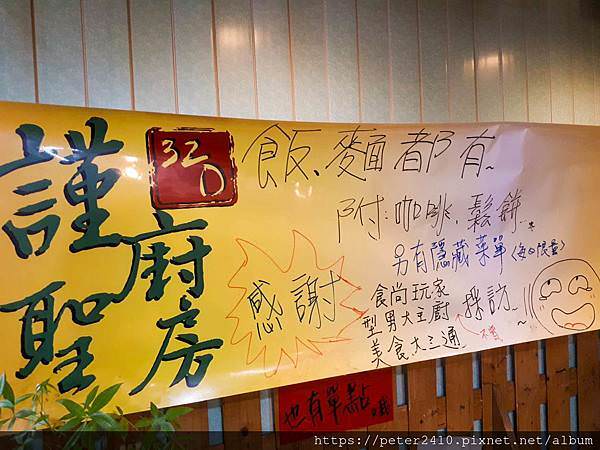 謹聖
廚房
32D
飯、麵都有~
附:咖啡.鬆餅...
另有隱藏菜單(每日限量)
感謝
食尚玩家
型男大主廚
美食大三通
採訪~
不要
也有單點哦
https://peter2410.pixnet.net/album